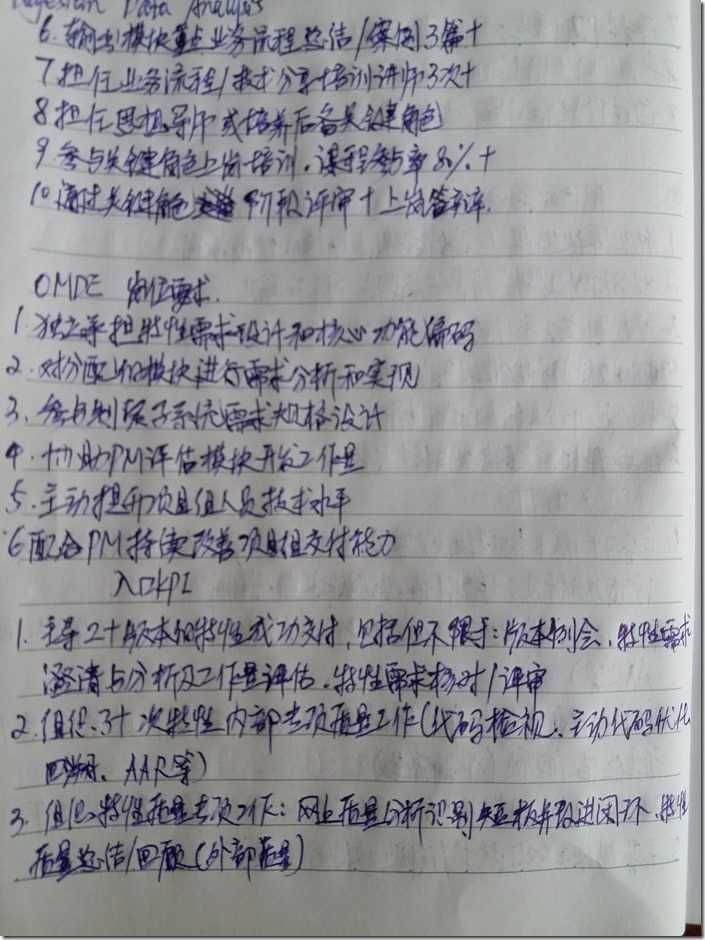 Bayesian Data Analysis
6. 输出模块重点业务流程总结/案例3篇+
7 担任业务流程/技术分享培训讲师3次+
8 担任思想导师或培养后备关键角色
9 参与关键角色上岗培训,课程参与率80%+
10 通过关键角色 阶段评审+上岗答辩.
OMDE 岗位需求.
1. 独立承担特性需求设计和核心功能编码
2. 对分配的模块进行需求分析和实现
3. 参与制定子系统需求规格设计
4. 协助PM评估模块开发工作量
5. 主动提升项目组人员技术水平
6 配合PM持续改善项目组交付能力
入口KPI
1. 主导2+版本的特性成功交付,包括但不限于:版本例会、特性需求
澄清与分析及工作量评估、特性需求核对/评审
2. 组织3+次特性内部专项质量工作(代码检视、主动代码优化
回溯、AAR等)
3. 组织特性质量专项工作:网上质量分析识别短板并改进闭环、特性
质量总结/回顾(外部质量)